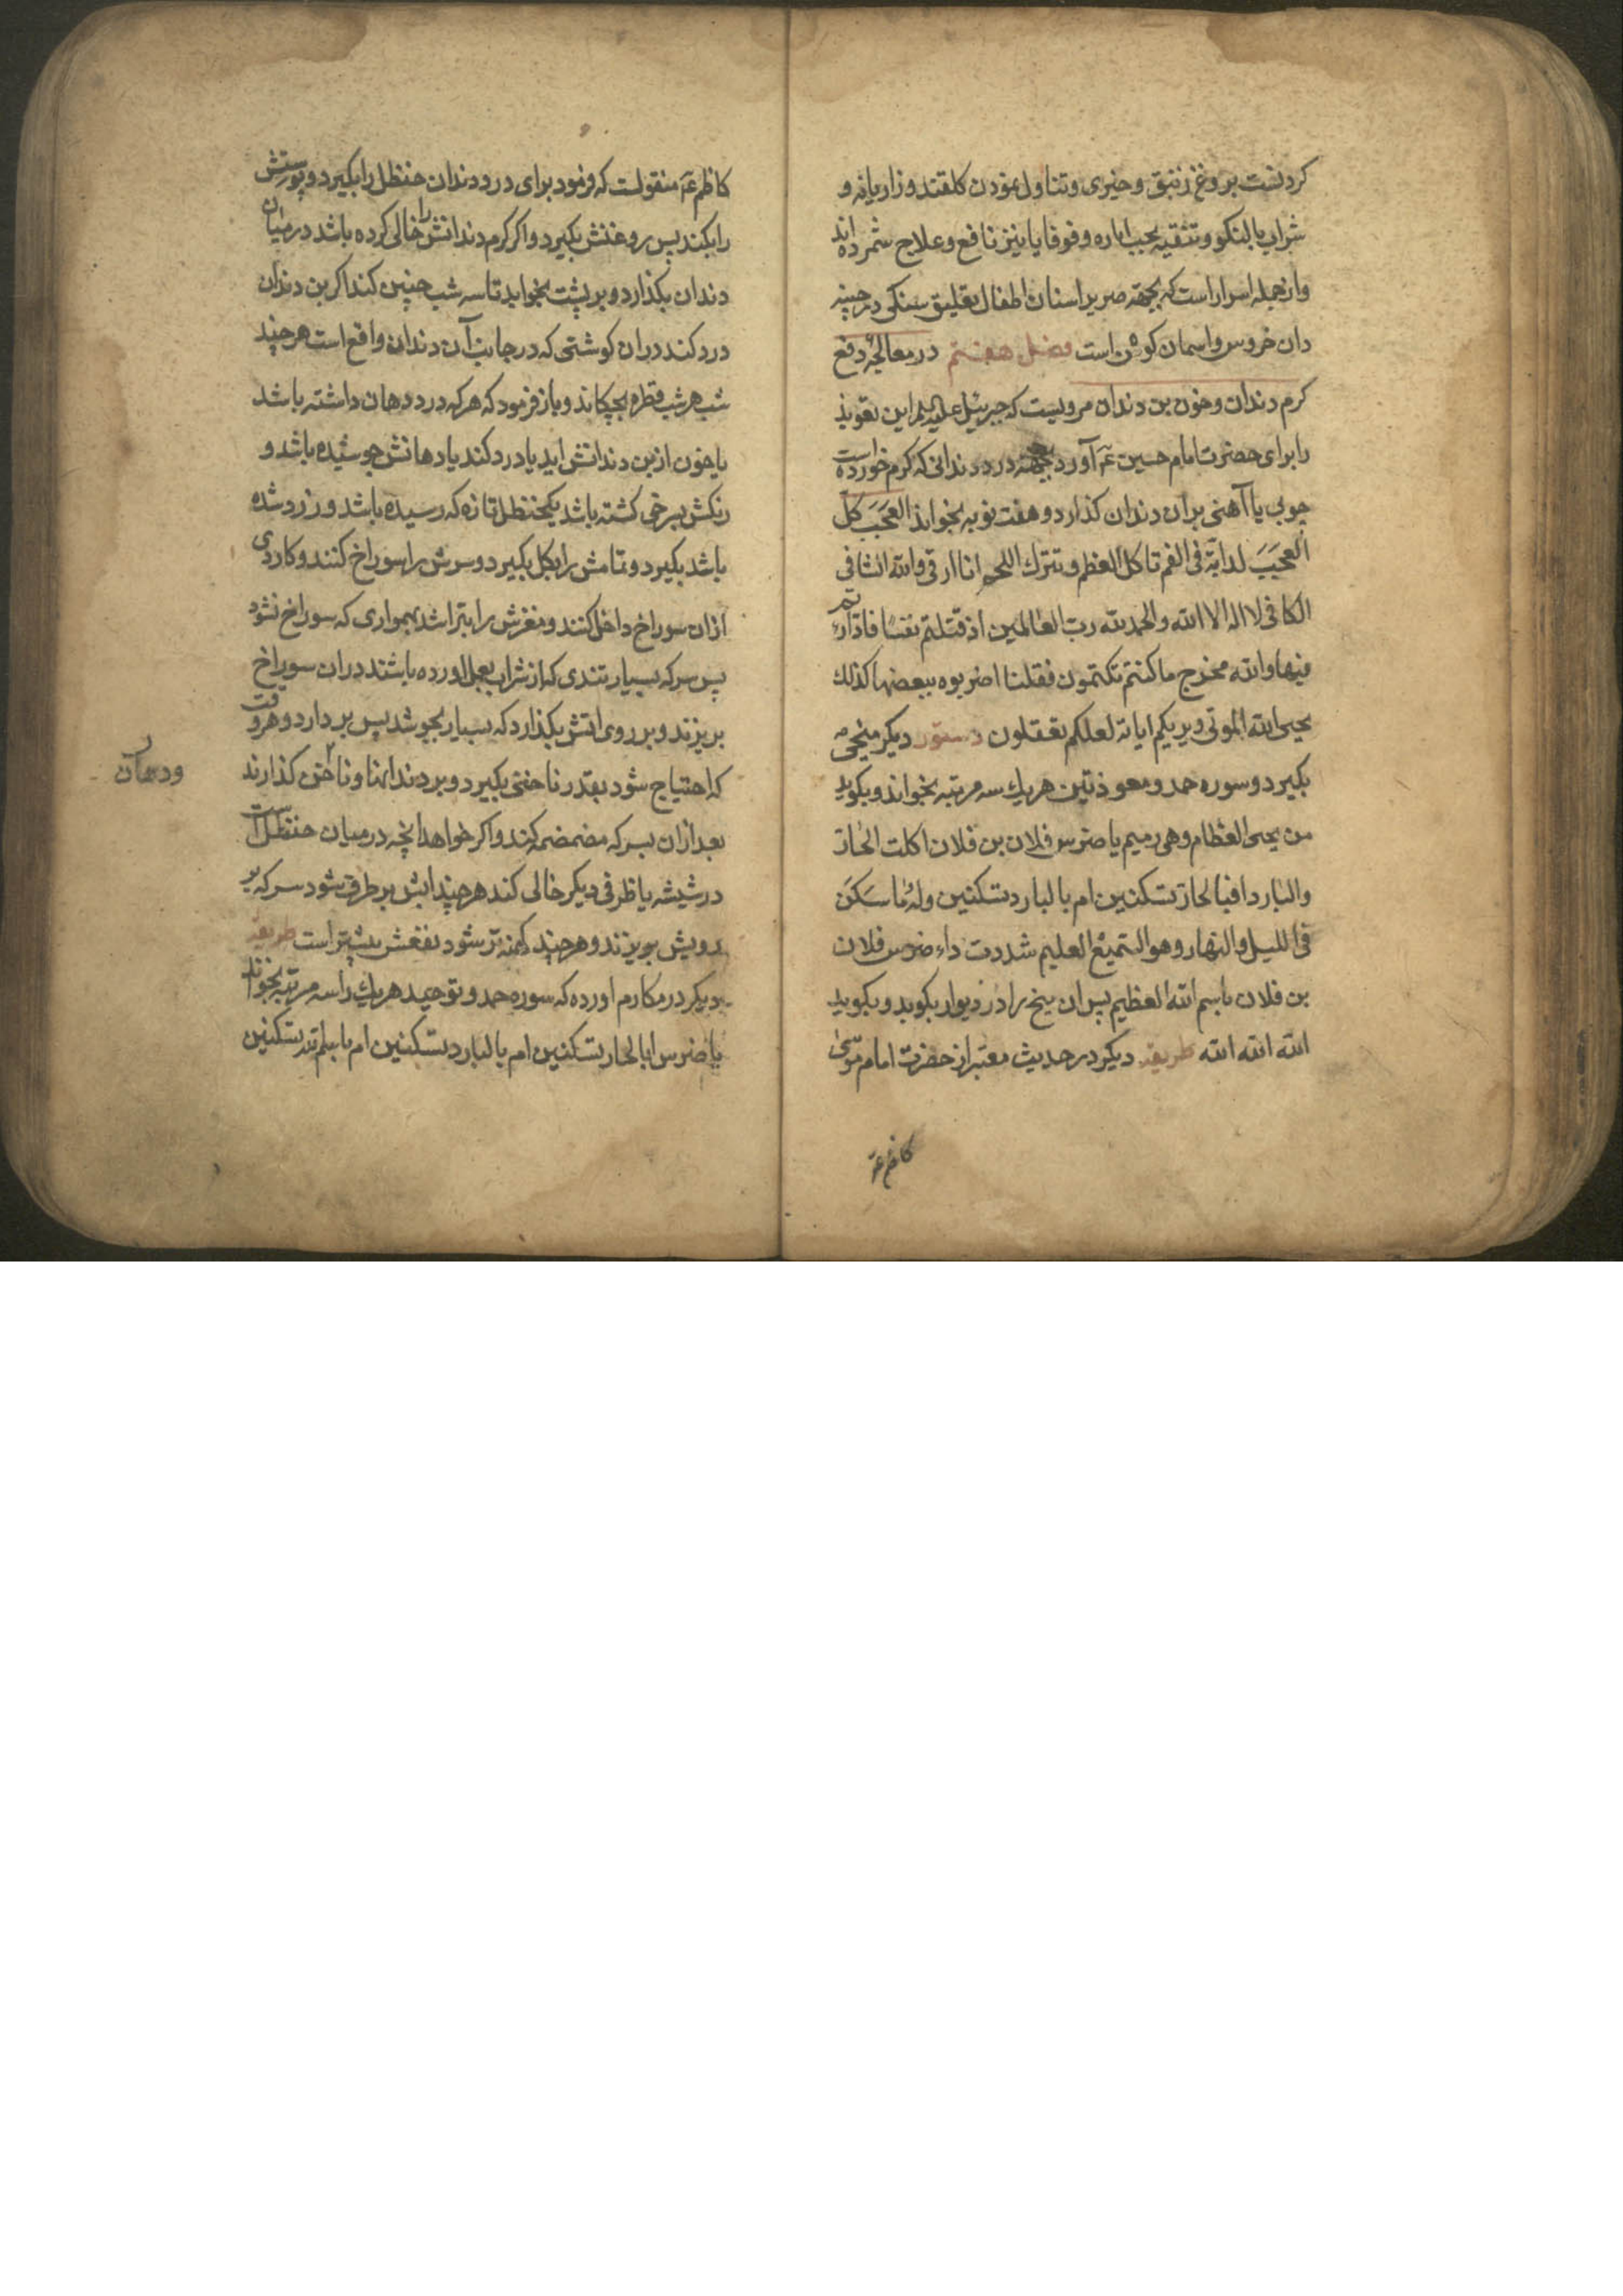 کردنست بروغن زنبق و خیری و تناول نمودن کلقند و زاریانه و
شراب بالنکو و تنقیه بحب ایاره و قوقایا نیز نافع و علاج شمرده اند
و از جمله اسرار است که بجهة صریر اسنان اطفال تعلیق سنکی در چینه
دان خروس و اسمان کون است فصل هفتم در معالجهٔ دفع
کرم دندان و خون بن دندان مرویست که جبرئیل علیه السلم این تعویذ
را برای حضرت امام حسین عم آورد بجهة درد دندانی که کرم خورده است
چوبی یا آهنی بران دندان کذارد و هفت نوبه بخواند العجب کل
العجب لدابة فی الفم تاکل العظم و تترك اللحم انا ارقی والله الشافی
الکافی لا اله الا الله والحمدلله رب العالمین اذ قتلتم نفسا فادارءتم
فیها والله مخرج ما کنتم تکتمون فقلنا اضربوه ببعضها کذلك
یحیی الله الموتی و یریکم ایاته لعلکم تعقلون دستور دیکر میخی
بکیرد و سوره حمد و معوذتین هریك سه مرتبه بخواند و بکوید
من یحی العظام و هی رمیم یا ضرس فلان بن فلان اکلت الحار
والبارد افبالحار تسکنین ام بالبارد تسکنین وله ما سکن
فی اللیل والنهار و هو السمیع العلیم شددت داء ضرس فلان
بن فلان باسم الله العظیم پس ان میخ را در دیوار بکوبد و بکوید
الله الله الله طریقه دیکر در حدیث معتبر از حضرت امام موسی
کاظم عم
کاظم عم منقولست که فرمود برای درد دندان حنظل را بکیرد و پوستش
را بکند پس روغنش بکیرد و اکر کرم دندانش را خالی کرده باشد در میان
دندان بکذارد و بر پشت بخوابد تا سه شب چنین کند اکر بن دندان
درد کند دران کوشتی که در جانب آن دندان واقع است هر چند
شب هر شب قطره بچکاند و باز فرمود که هرکه درد دهان داشته باشد
یا خون از بن دندانش اید یا درد کند یا دهانش جوشیده باشد و
رنکش بسرخی کشته باشد یکحنظل تازه که رسیده باشد و زرد شده
باشد بکیرد و تمامش را بکل بکیرد و سرش را سوراخ کنند و کاردی
ازان سوراخ داخل کنند و مغزش را بتراشد بهمواری که سوراخ نشود
پس سرکه بسیار تندی که از شراب بعمل اورده باشند دران سوراخ
بریزند و بر روی اتش بکذارد که بسیار بجوشد پس بردارد و هر وقت
که احتیاج شود بقدر ناخنی بکیرد و بر دندانها و ناخن کذارند
ودهان
بعد ازان بسرکه مضمضه کند و اکر خواهد انچه در میان حنظل است
در شیشه یا ظرفی دیکر خالی کند هر چند ابش بر طرف شود سرکه بر
رویش بریزند و هر چند کهنه تر شود نفعش بیشتر است طریقه
دیکر در مکارم اورده که سوره حمد و توحید هریك را سه مرتبه بخواند
یا ضرس ابالحار تسکنین ام بالبارد تسکنین ام باسم الله تسکنین